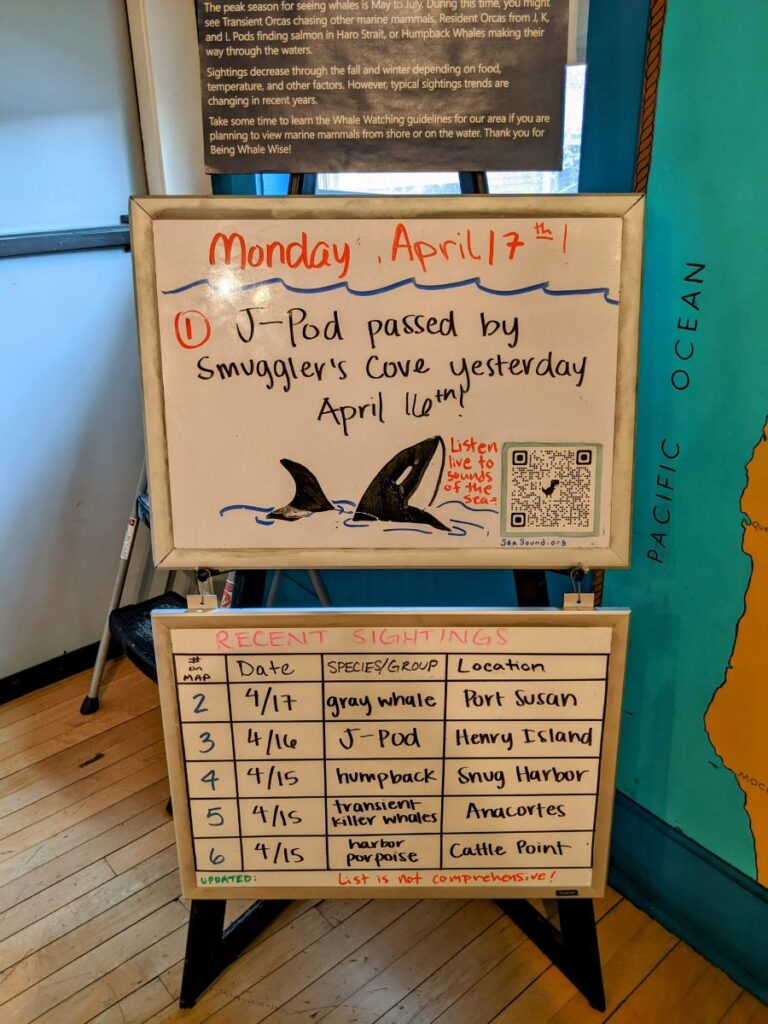 The peak season for seeing whales is May to July. During this time, you might
see Transient Orcas chasing other marine mammals, Resident Orcas from J, K,
and L Pods finding salmon in Haro Strait, or Humpback Whales making their
way through the waters.
Sightings decrease through the fall and winter depending on food,
temperature, and other factors. However, typical sightings trends are
changing in recent years.
Take some time to learn the Whale Watching guidelines for our area if you are
planning to view marine mammals from shore or on the water. Thank you for
Being Whale Wise!
Monday, April 17th!
1 J-Pod passed by
Smuggler's Cove yesterday
April 16th!
Listen
live to
sounds
of the
sea
SeaSound.org
PACIFIC OCEAN
RECENT SIGHTINGS
# on MAP Date SPECIES/GROUP Location
2 4/17 gray whale Port Susan
3 4/16 J-Pod Henry Island
4 4/15 humpback Snug Harbor
5 4/15 transient killer whales Anacortes
6 4/15 harbor porpoise Cattle Point
UPDATED: List is not comprehensive!